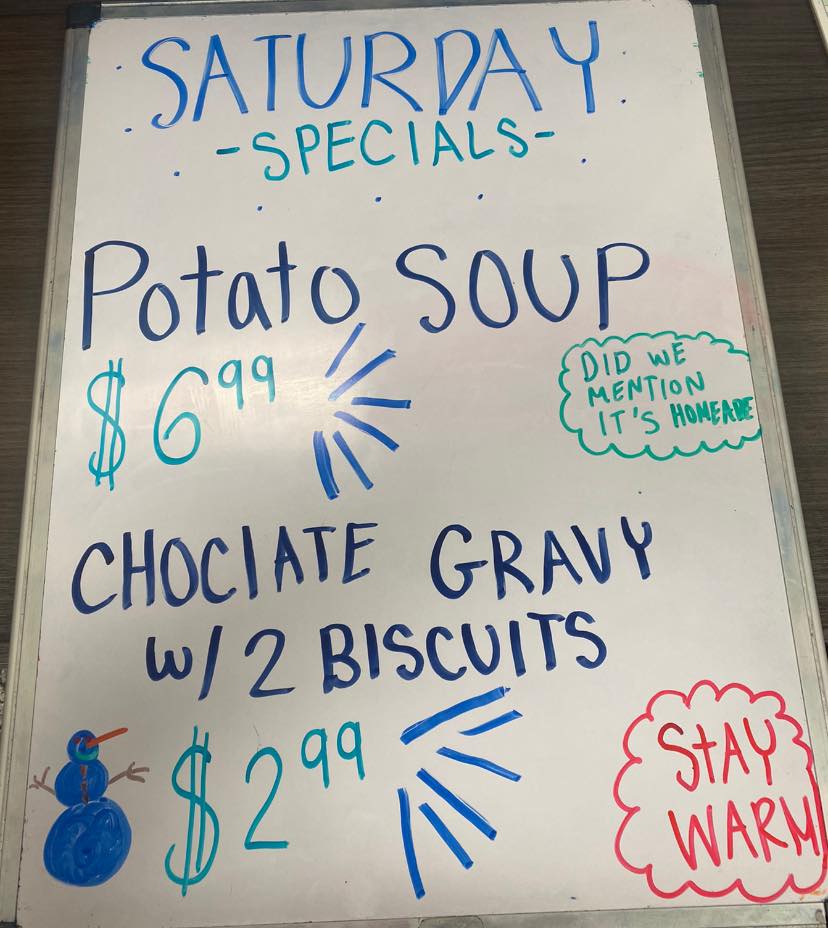 SATURDAY
-SPECIALS-
Potato SOUP
$6.99
DID WE
MENTION
IT'S HOMEADE
CHOCIATE GRAVY
W/ 2 BISCUITS
$2.99
StAY
WARM